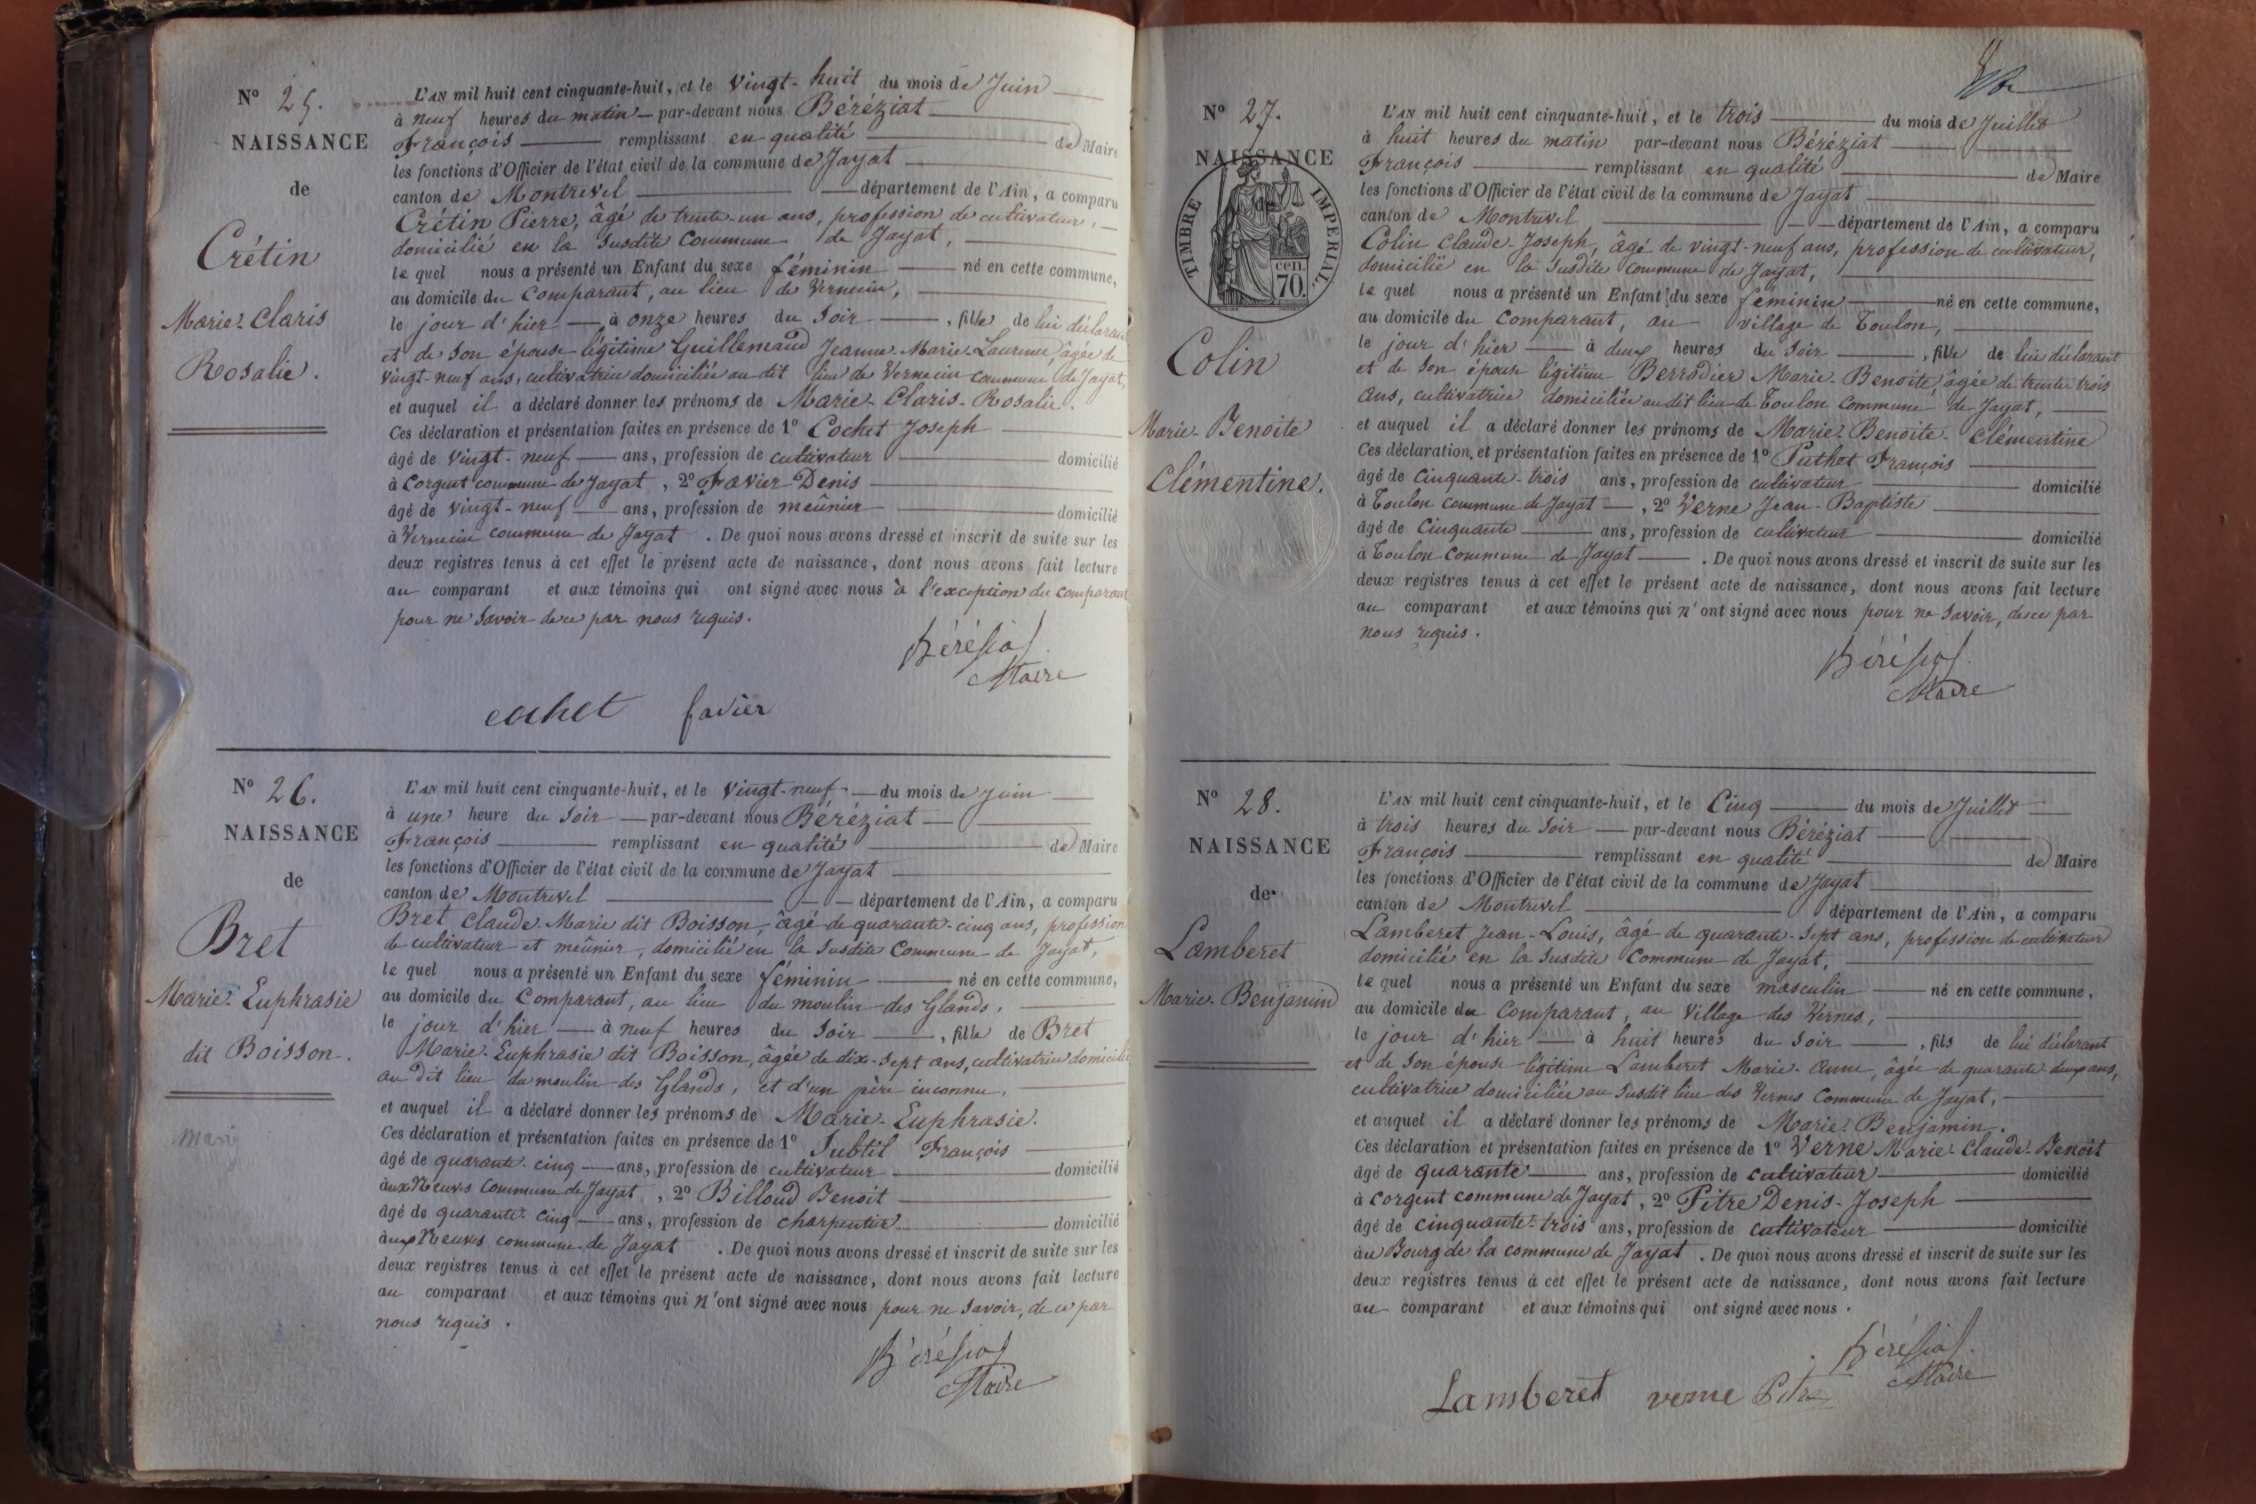 N° 25.
NAISSANCE
de
Crétin
Marie-Claris
Rosalie.
L'AN mil huit cent cinquante-huit, et le vingt-huit du mois de Juin
à neuf heures du matin par-devant nous Béréziat
François remplissant en qualité de Maire
les fonctions d'Officier de l'état civil de la commune de Jayat
canton de Montrevel département de l'Ain, a comparu
Crétin Pierre, âgé de trente-un ans, profession de cultivateur,
domicilié en la susdite commune de Jayat,
le quel nous a présenté un Enfant du sexe féminin né en cette commune,
au domicile du comparant, au lieu de Vernecin,
le jour d'hier à onze heures du soir, fille de lui déclarant
et de son épouse légitime Guillemaud Jeanne-Marie-Laurence, âgée de
vingt-neuf ans, cultivatrice domiciliée au dit lieu de Vernecin commune de Jayat,
et auquel il a déclaré donner les prénoms de Marie-Claris-Rosalie.
Ces déclaration et présentation faites en présence de 1° Cochet Joseph
âgé de vingt-neuf ans, profession de cultivateur domicilié
à Corgent commune de Jayat, 2° Favier Denis
âgé de vingt-neuf ans, profession de meûnier domicilié
à Vernecin commune de Jayat. De quoi nous avons dressé et inscrit de suite sur les
deux registres tenus à cet effet le présent acte de naissance, dont nous avons fait lecture
au comparant et aux témoins qui ont signé avec nous à l'exception du comparant
pour ne savoir de ce par nous requis.
Béréziat
Maire
cochet favier
N° 26.
NAISSANCE
de
Bret
Marie-Euphrasie
dit Boisson.
L'AN mil huit cent cinquante-huit, et le vingt-neuf du mois de Juin
à une heure du soir par-devant nous Béréziat
François remplissant en qualité de Maire
les fonctions d'Officier de l'état civil de la commune de Jayat
canton de Montrevel département de l'Ain, a comparu
Bret Claude-Marie dit Boisson, âgé de quarante-cinq ans, profession
de cultivateur et meûnier, domicilié en la susdite commune de Jayat,
le quel nous a présenté un Enfant du sexe féminin né en cette commune,
au domicile du comparant, au lieu du moulin des Glands,
le jour d'hier à neuf heures du soir, fille de Bret
Marie-Euphrasie dit Boisson, âgée de dix-sept ans, cultivatrice domiciliée
au dit lieu du moulin des Glands, et d'un père inconnu,
et auquel il a déclaré donner les prénoms de Marie-Euphrasie.
Ces déclaration et présentation faites en présence de 1° Subtil François
âgé de quarante-cinq ans, profession de cultivateur domicilié
aux Neuves commune de Jayat, 2° Billoud Benoit
âgé de quarante-cinq ans, profession de charpentier domicilié
aux Neuves commune de Jayat. De quoi nous avons dressé et inscrit de suite sur les
deux registres tenus à cet effet le présent acte de naissance, dont nous avons fait lecture
au comparant et aux témoins qui n'ont signé avec nous pour ne savoir, de ce par
nous requis.
Béréziat
Maire
N° 27.
NAISSANCE
de
TIMBRE IMPERIAL
cen.
70.
Colin
Marie-Benoite
Clémentine.
L'AN mil huit cent cinquante-huit, et le trois du mois de Juillet
à huit heures du matin par-devant nous Béréziat
François remplissant en qualité de Maire
les fonctions d'Officier de l'état civil de la commune de Jayat
canton de Montrevel département de l'Ain, a comparu
Colin Claude-Joseph, âgé de vingt-neuf ans, profession de cultivateur,
domicilié en la susdite commune de Jayat,
le quel nous a présenté un Enfant du sexe féminin né en cette commune,
au domicile du comparant, au village de Toulon,
le jour d'hier à deux heures du soir, fille de lui déclarant
et de son épouse légitime Berrodier Marie-Benoite, âgée de trente trois
ans, cultivatrice domiciliée au dit lieu de Toulon commune de Jayat,
et auquel il a déclaré donner les prénoms de Marie-Benoite-Clémentine
Ces déclaration et présentation faites en présence de 1° Puthet François
âgé de cinquante-trois ans, profession de cultivateur domicilié
à Toulon commune de Jayat, 2° Verne Jean-Baptiste
âgé de cinquante ans, profession de cultivateur domicilié
à Toulon commune de Jayat. De quoi nous avons dressé et inscrit de suite sur les
deux registres tenus à cet effet le présent acte de naissance, dont nous avons fait lecture
au comparant et aux témoins qui n'ont signé avec nous pour ne savoir, de ce par
nous requis.
Béréziat
Maire
N° 28.
NAISSANCE
de
Lamberet
Marie-Benjamin
L'AN mil huit cent cinquante-huit, et le Cinq du mois de Juillet
à trois heures du soir par-devant nous Béréziat
François remplissant en qualité de Maire
les fonctions d'Officier de l'état civil de la commune de Jayat
canton de Montrevel département de l'Ain, a comparu
Lamberet Jean-Louis, âgé de quarante-sept ans, profession de cultivateur
domicilié en la susdite commune de Jayat,
le quel nous a présenté un Enfant du sexe masculin né en cette commune,
au domicile du comparant, au village des Vernes,
le jour d'hier à huit heures du soir, fils de lui déclarant
et de son épouse légitime Lamberet Marie-Anne, âgée de quarante deux ans,
cultivatrice domiciliée au susdit lieu des Vernes commune de Jayat,
et auquel il a déclaré donner les prénoms de Marie-Benjamin.
Ces déclaration et présentation faites en présence de 1° Verne Marie-Claude-Benoit
âgé de quarante ans, profession de cultivateur domicilié
à Corgent commune de Jayat, 2° Pitre Denis-Joseph
âgé de cinquante-trois ans, profession de cultivateur domicilié
au Bourg de la commune de Jayat. De quoi nous avons dressé et inscrit de suite sur les
deux registres tenus à cet effet le présent acte de naissance, dont nous avons fait lecture
au comparant et aux témoins qui ont signé avec nous.
Béréziat
Maire
Lamberet verne Pitre